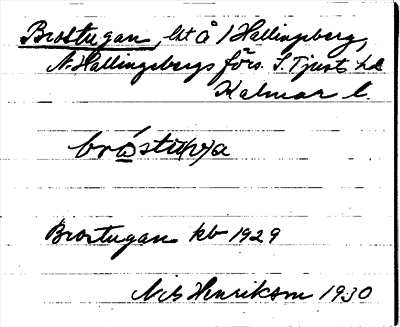 Brostugan, lht å /Hallingeberg,
N. Hallingebergs förs. S. Tjust hd
Kalmar l.
Brostugan kb 1929
Nils Henrikson 1930